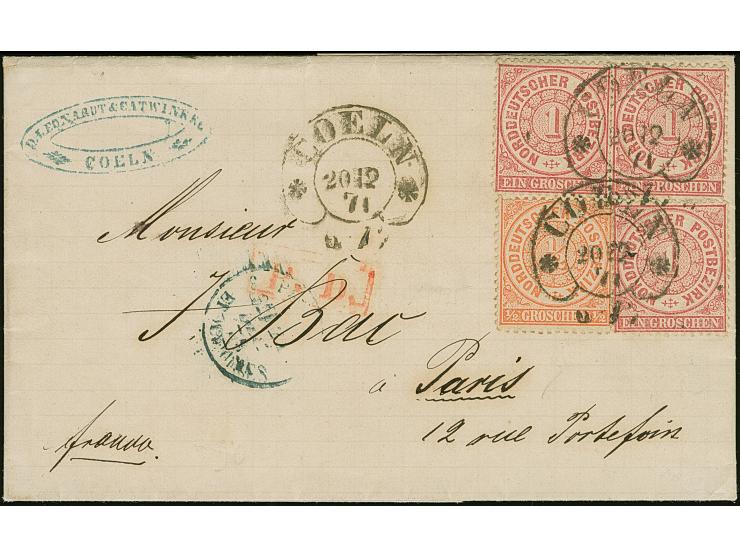 D. LEONARDT & CATWINKEL
COELN
COELN
20 12
71
NORDDEUTSCHER POSTBEZIRK
1
EIN GROSCHEN
NORDDEUTSCHER POSTBEZIRK
1
EIN GROSCHEN
COELN
20 12
NORDDEUTSCHER POSTBEZIRK
1/2 GROSCHEN 1/2
NORDDEUTSCHER POSTBEZIRK
EIN GROSCHEN
COELN
20 12
71
Monsieur
J Bac
à Paris
12 rue Portefoin
franco